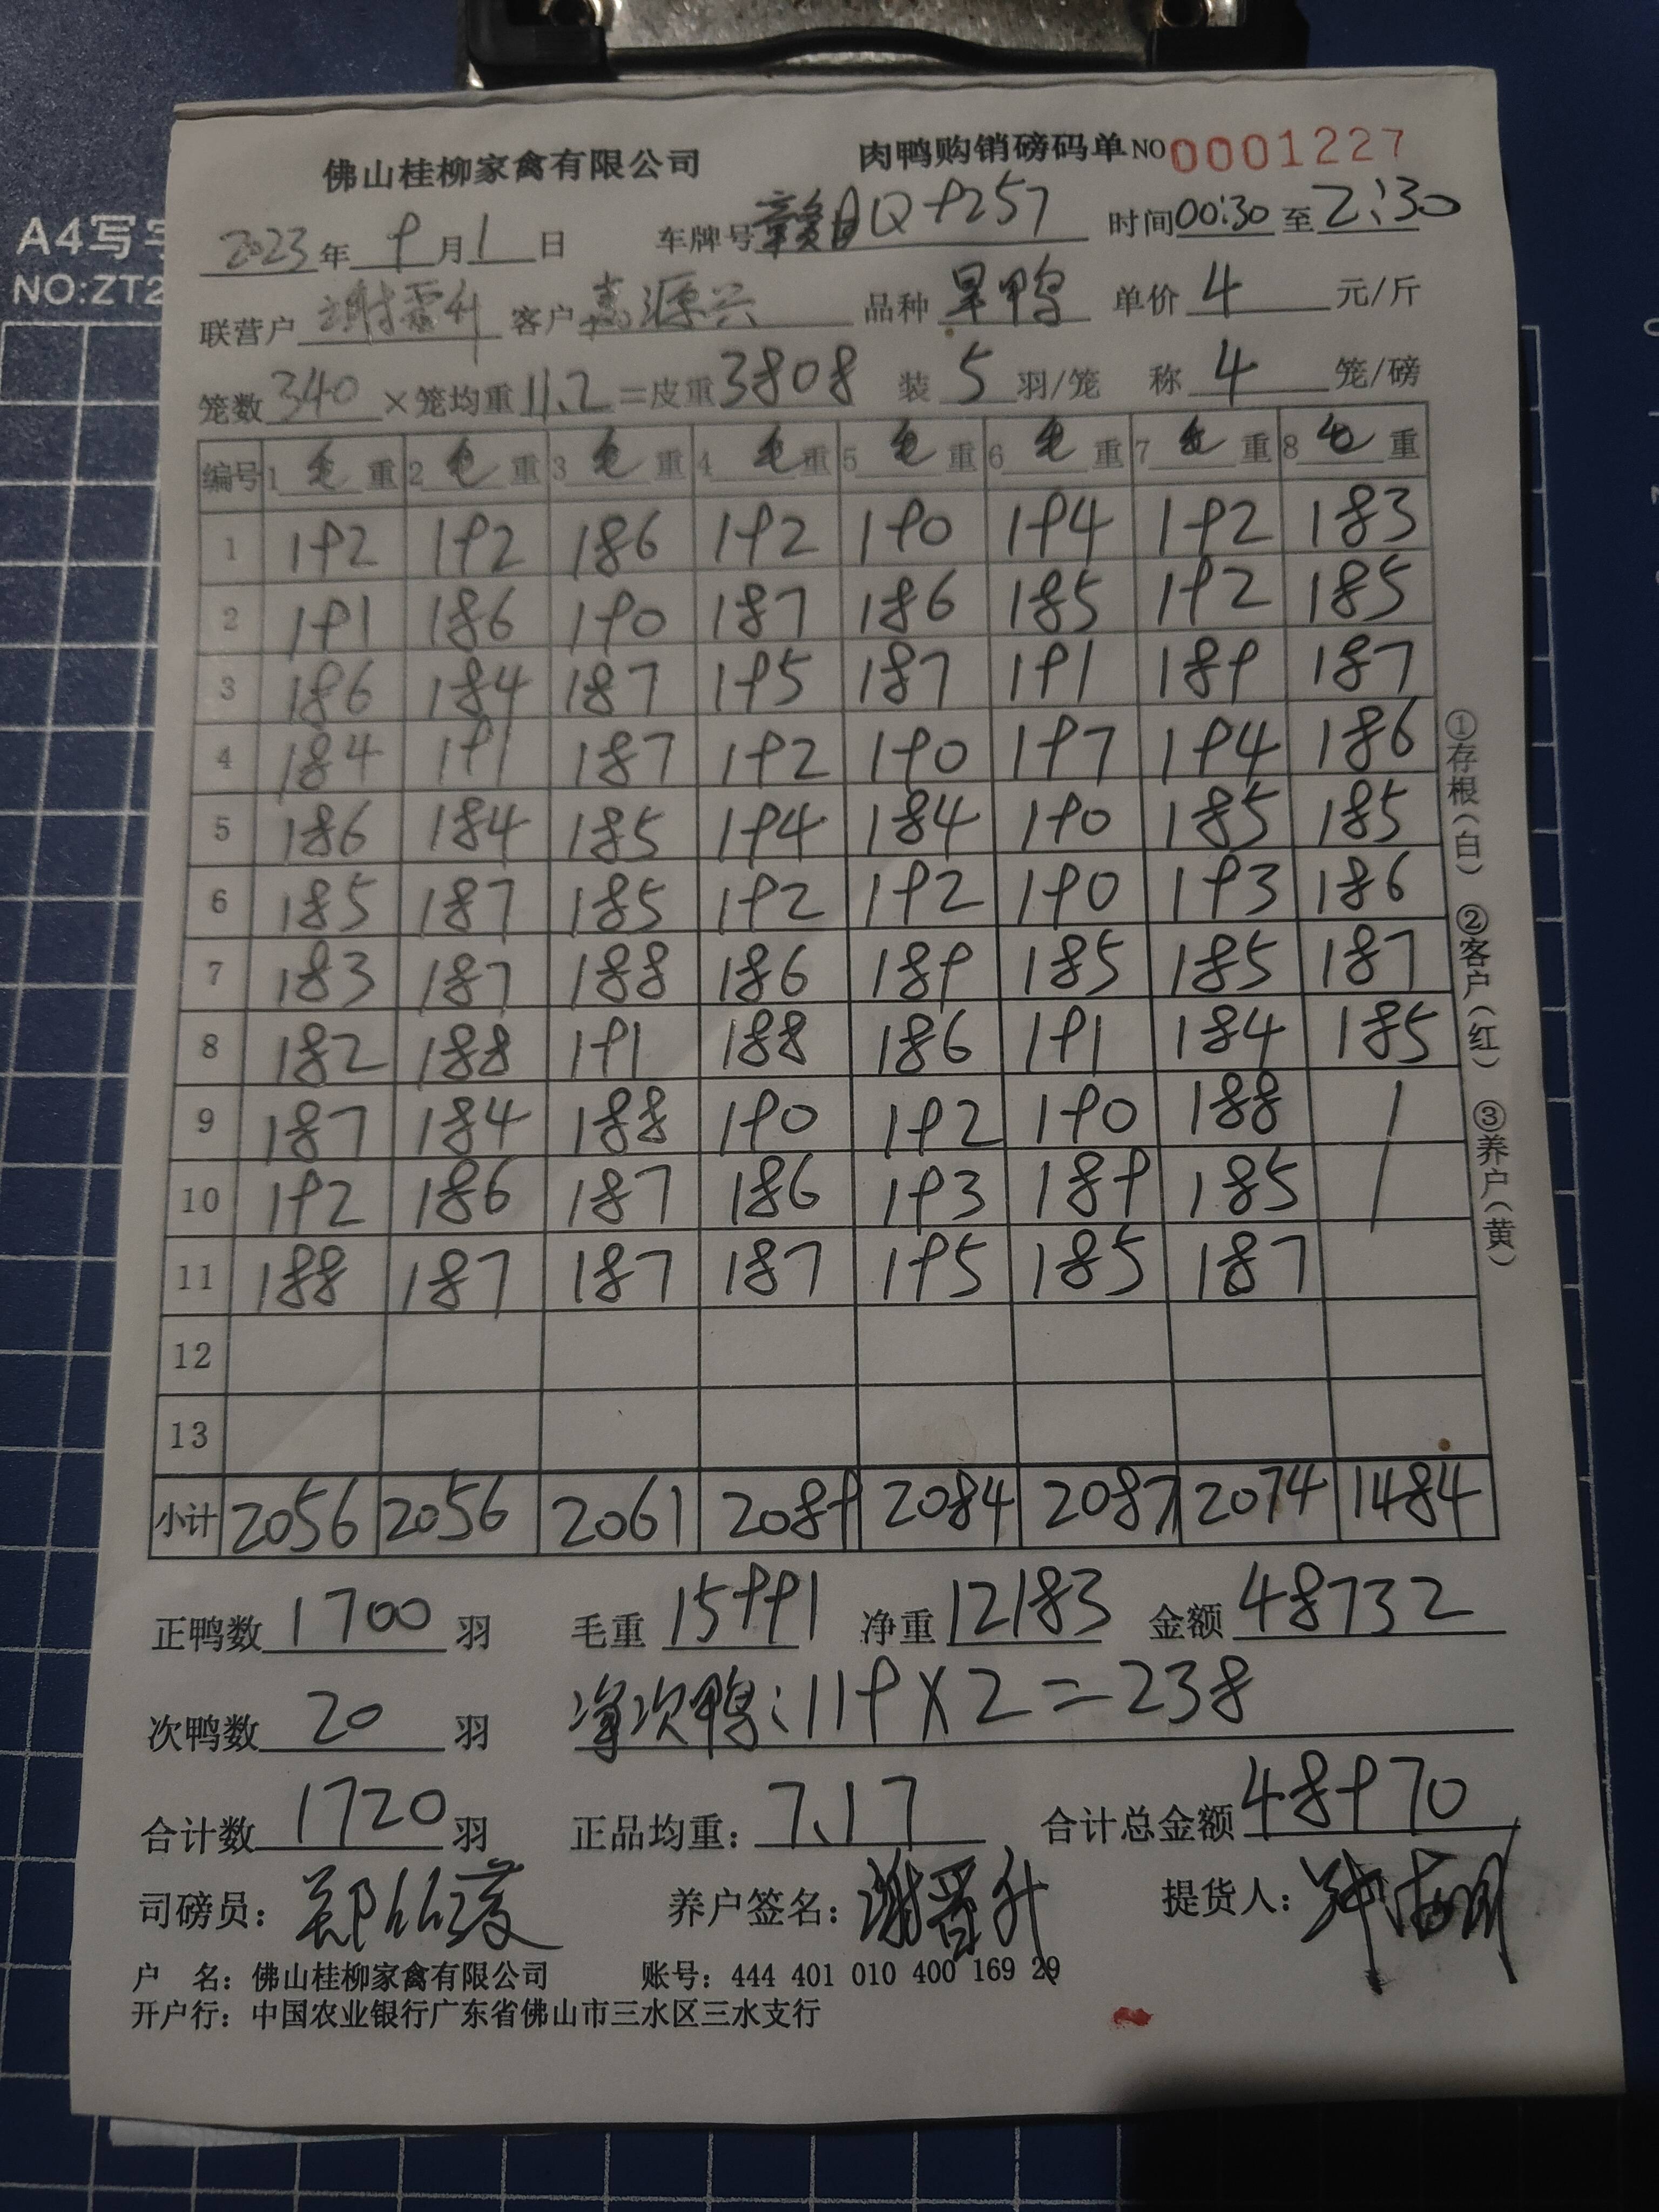 A4写字
NO:ZT2
佛山桂柳家禽有限公司 肉鸭购销磅码单 NO 0001227
2023年 9月1日 车牌号 赣Q9257 时间00:30至2:30
联营户 谢晋升 客户 嘉源兴 品种 旱鸭 单价 4 元/斤
笼数340×笼均重11.2=皮重3808 装 5 羽/笼 称 4 笼/磅
编号 1毛重 2毛重 3毛重 4毛重 5毛重 6毛重 7毛重 8毛重
1 192 192 186 192 190 194 192 183
2 191 186 190 187 186 185 192 185
3 186 184 187 195 187 191 189 187
4 184 191 187 192 190 197 194 186
5 186 184 185 194 184 190 185 185
6 185 187 185 192 192 190 193 186
7 183 187 188 186 189 185 185 187
8 182 188 191 188 186 191 184 185
9 187 184 188 190 192 190 188 /
10 192 186 187 186 193 189 185 /
11 188 187 187 187 195 185 187
12
13
小计 2056 2056 2061 2089 2084 2087 2074 1484
①存根(白) ②客户(红) ③养户(黄)
正鸭数 1700 羽 毛重 15991 净重 12183 金额 48732
次鸭数 20 羽 净次鸭:119×2=238
合计数 1720 羽 正品均重: 7.17 合计总金额 48970
司磅员: 郑 养户签名: 谢晋升 提货人:
户 名: 佛山桂柳家禽有限公司 账号: 444 401 010 400 169 29
开户行: 中国农业银行广东省佛山市三水区三水支行